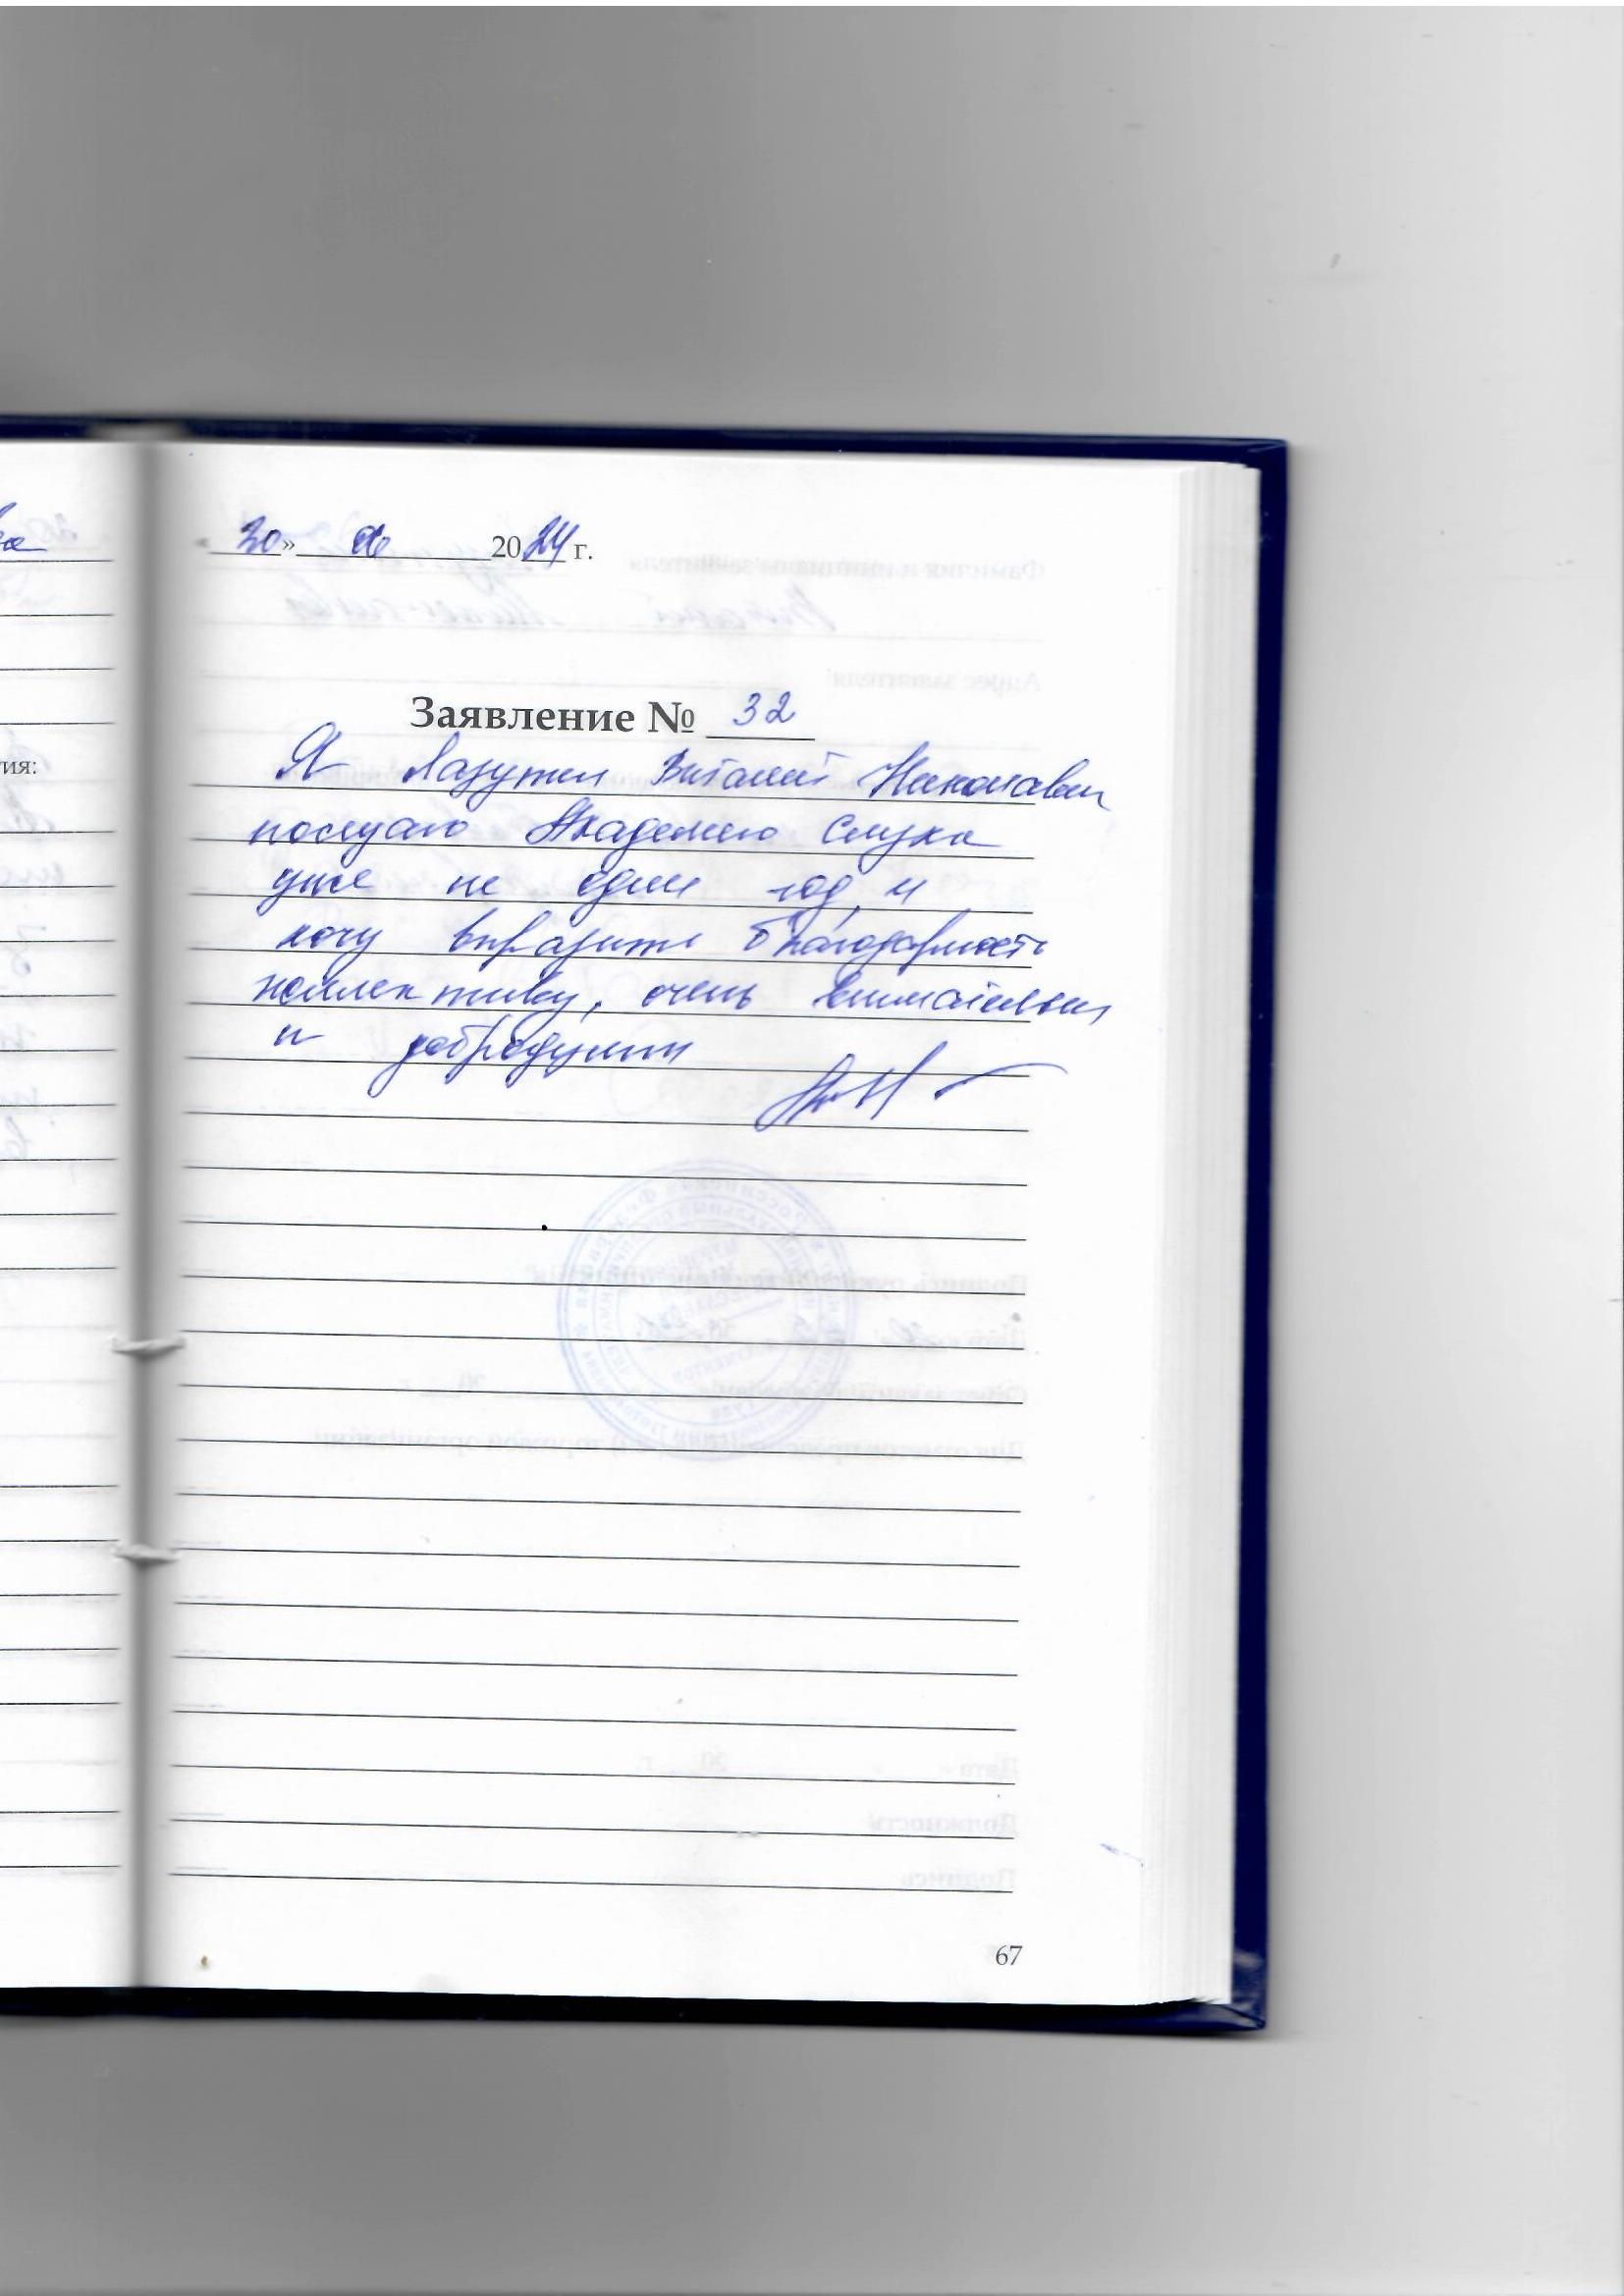 30» 20 24 г.
Заявление № 32
тия:
Я Лазутин Виталий Николаевич
посещаю Академию Слуха
уже не один год, и
хочу выразить благодарность
коллективу, очень внимательны
и добродушны
67